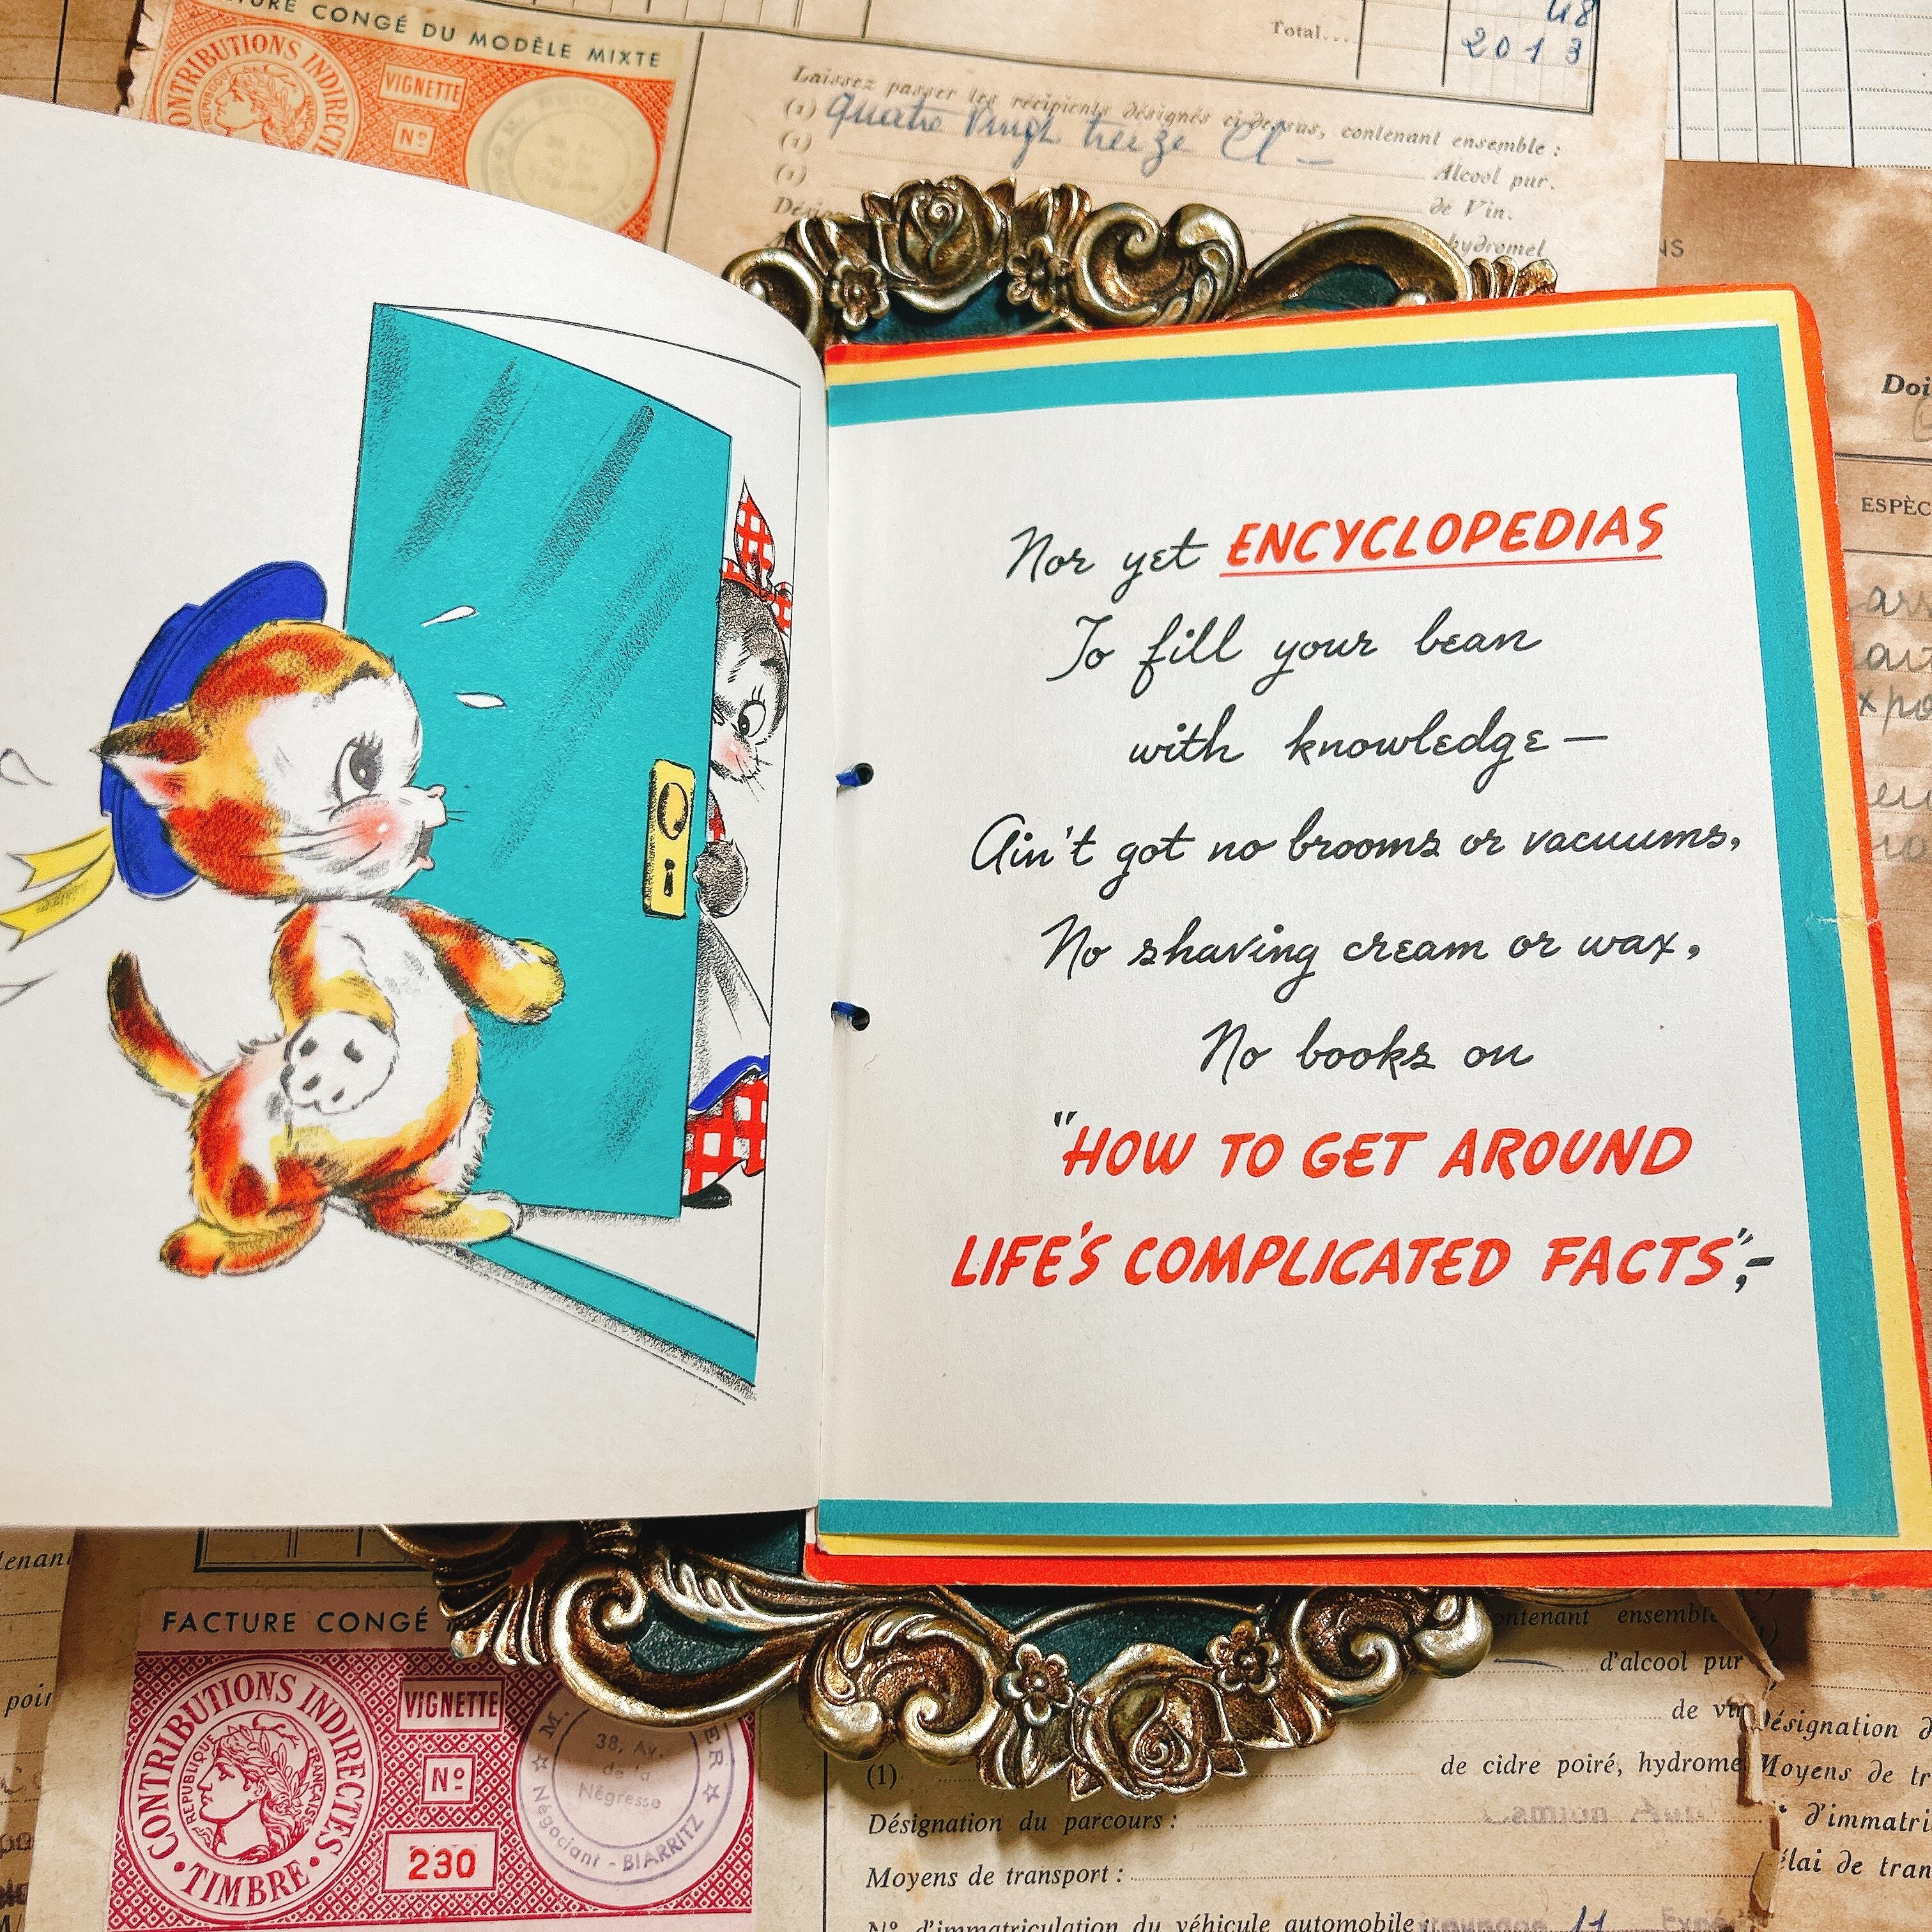 FACTURE CONGÉ DU MODÈLE MIXTE
CONTRIBUTIONS INDIRECTES
VIGNETTE
Nº
Total...
48
2013
Laissez passer les récipients désignés ci-dessus, contenant ensemble :
(1) Quatre Vingt treize Cl
(1) Alcool pur.
(1) de Vin.
hydromel
Doi
ESPÈC
Nor yet ENCYCLOPEDIAS
To fill your bean
with knowledge —
Ain't got no brooms or vacuums,
No shaving cream or wax,
No books on
"HOW TO GET AROUND
LIFE'S COMPLICATED FACTS",-
FACTURE CONGÉ
CONTRIBUTIONS INDIRECTES
RÉPUBLIQUE FRANÇAISE
• TIMBRE •
VIGNETTE
Nº
230
38, Av.
de la
Négresse
Négociant - BIARRITZ
contenant ensemble
d'alcool pur
de vin
(1) de cidre poiré, hydrome
Désignation du parcours :
Moyens de transport :
Nº d'immatriculation du véhicule automobile
11
Désignation d
Moyens de tr
d'immatri